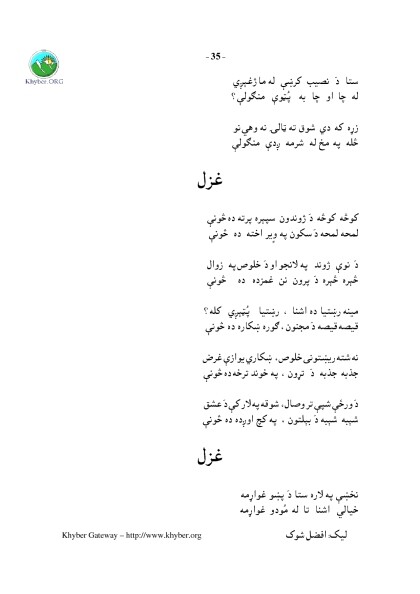 - 35 -
Khyber.ORG
ستا دَ نصيب کرښې له ما ژغېږي
له چا او چا به پُټوې منګولې؟
زړه که دې شوق ته ټالۍ ته وهي نو
څله په مخ له شرمه ږدې منګولې
غزل
کوڅه کوڅه دَ ژوندون سپېره پرته ده څونې
لمحه لمحه دَ سکون په وير اخته ده څونې
دَ نوې ژوند په لانجو او دَ خلوص په زوال
څېره څېره دَ پرون نن غمزده ده څونې
مينه رښتيا ده اشنا ، رښتيا پُټېږي کله؟
قيصه قيصه دَ مجنون، ګوره ښکاره ده څونې
نه شته ريښتونی خلوص، ښکاري يوازې غرض
جذبه جذبه دَ تړون ، په خوند ترخه ده څونې
دَ ورځې شپې تر وصال، شوقه په لار کې دَ عشق
شېبه شېبه دَ بېلتون ، په کچ اوږده ده څونې
غزل
نخښې په لاره ستا دَ پښو غواړمه
خيالي اشنا تا له مُودو غواړمه
ليک: افضل شوک
Khyber Gateway – http://www.khyber.org